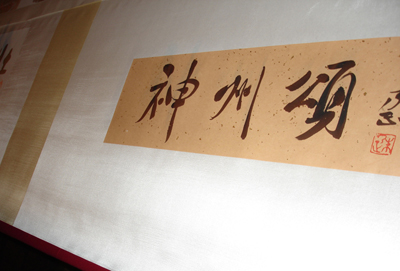 神州頌